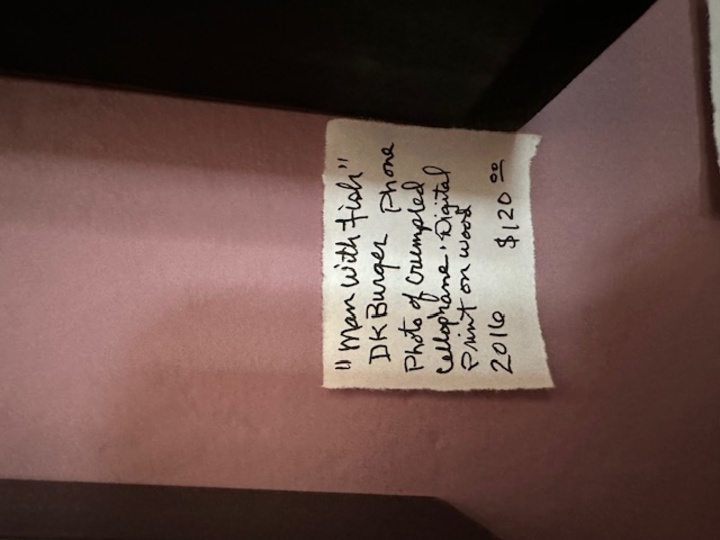 "Man with Fish"
DK Burger Phone
Photo of Crumpled
Cellophane. Digital
Print on wood
2016 $120 00